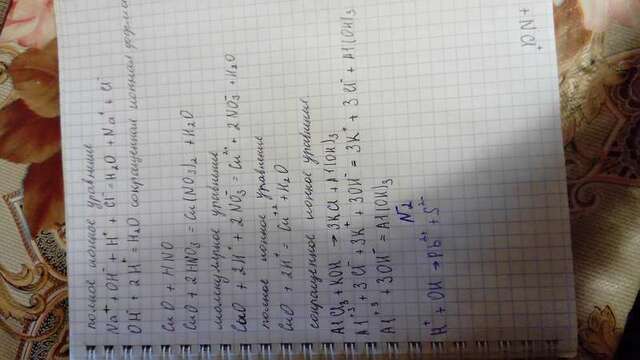 полное ионное уравнение
Na⁺ + OH⁻ + H⁺ + Cl⁻ = H₂O + Na⁺ + Cl⁻
OH⁻ + 2H⁺ = H₂O сокращенная ионная форма
CuO + HNO
CuO + 2HNO₃ = Cu(NO₃)₂ + H₂O
молекулярное уравнение
CuO + 2H⁺ + 2NO₃⁻ = Cu²⁺ + 2NO₃⁻ + H₂O
полное ионное уравнение
CuO + 2H⁺ = Cu⁺² + H₂O
сокращенное ионное уравнение
AlCl₃ + KOH → 3KCl + Al(OH)₃
Al⁺³ + 3Cl⁻ + 3K⁺ + 3OH⁻ = 3K⁺ + 3Cl⁻ + Al(OH)₃
Al⁺³ + 3OH⁻ = Al(OH)₃
№2
H⁺ + OH → Pb²⁺ + S²⁻
+ Na⁺